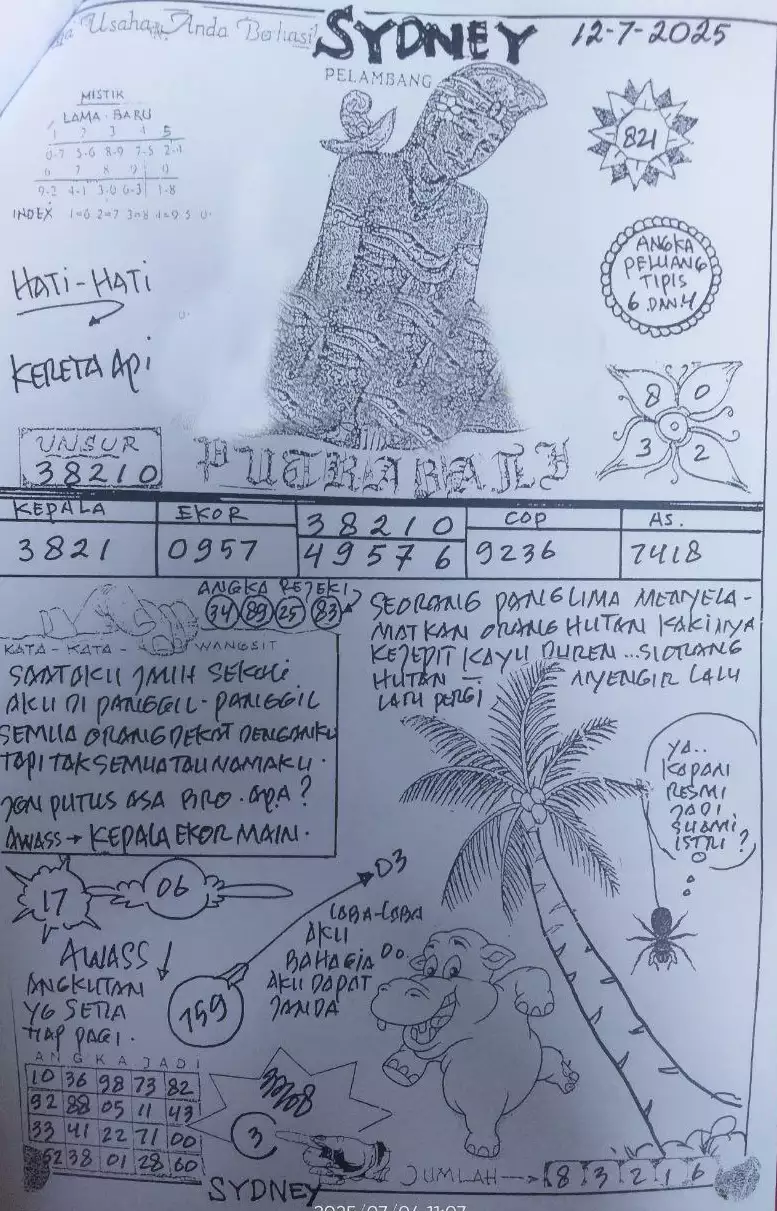 Usaha Anda Berhasil
SYDNEY
12-7-2025
PELAMBANG
MISTIK
LAMA - BARU
1 2 3 4 5
0-7 5-6 8-9 7-5 2-1
6 7 8 9 0
9-2 4-1 3-0 6-3 1-8
INDEX 1=6 2=7 3=8 4=9 5 0
821
ANGKA
PELUANG
TIPIS
6 DAN 4
HATI-HATI
KERETA API
8 0
3 2
UNSUR
38210
PUTRA BALI
KEPALA
EKOR
38210
COP
AS.
3821
0957
49576
9236
7418
ANGKA REJEKI
34 89 25 83
KATA - KATA - WANGSIT
SAAT AKU JAUH SEKALI
AKU DI PANGGIL-PANGGIL
SEMUA ORANG DEKAT DENGANKU
TAPI TAK SEMUA TAU NAMAKU.
JGN PUTUS ASA BRO. APA?
AWASS → KEPALA EKOR MAIN.
SEORANG PANGLIMA MENYELA-
MATKAN ORANG HUTAN KAKINYA
KEJEPIT KAYU DUREN ... SIORANG
HUTAN — NYENGIR LALU
LALU PERGI
YA..
KAPAN
RESMI
JADI
SUAMI
ISTRI?
17
06
03
LABA-LABA
AKU
BAHAGIA
AKU DAPAT
JANDA
AWASS
ANGKUTAN
YG SETIA
TIAP PAGI.
759
ANGKA JADI
10 36 98 73 82
92 88 05 11 43
33 41 22 71 00
62 38 01 28 60
3
JUMLAH → 8 3 2 1 6
SYDNEY
2025/07/04 11:07